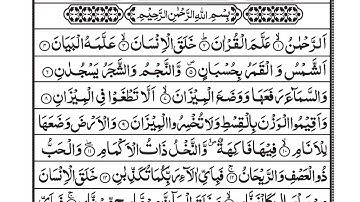 بِسْمِ اللهِ الرَّحْمٰنِ الرَّحِيْمِ
اَلرَّحْمٰنُ ۙ﴿۱﴾ عَلَّمَ الْقُرْاٰنَ ؕ﴿۲﴾ خَلَقَ الْاِنْسَانَ ۙ﴿۳﴾ عَلَّمَهُ الْبَيَانَ ﴿۴﴾
اَلشَّمْسُ وَ الْقَمَرُ بِحُسْبَانٍ ۪﴿۵﴾ وَّالنَّجْمُ وَالشَّجَرُ يَسْجُدٰنِ ﴿۶﴾
وَالسَّمَآءَ رَفَعَهَا وَوَضَعَ الْمِيْزَانَ ۙ﴿۷﴾ اَلَّا تَطْغَوْا فِي الْمِيْزَانِ ﴿۸﴾
وَاَقِيْمُوا الْوَزْنَ بِالْقِسْطِ وَلَا تُخْسِرُوا الْمِيْزَانَ ﴿۹﴾ وَالْاَرْضَ وَضَعَهَا
لِلْاَنَامِ ۙ﴿۱۰﴾ فِيْهَا فَاكِهَةٌ ۪ۙ وَّالنَّخْلُ ذَاتُ الْاَكْمَامِ ۖ﴿۱۱﴾ وَالْحَبُّ
ذُو الْعَصْفِ وَالرَّيْحَانُ ۚ﴿۱۲﴾ فَبِاَيِّ اٰلَآءِ رَبِّكُمَا تُكَذِّبٰنِ ﴿۱۳﴾ خَلَقَ الْاِنْسَانَ